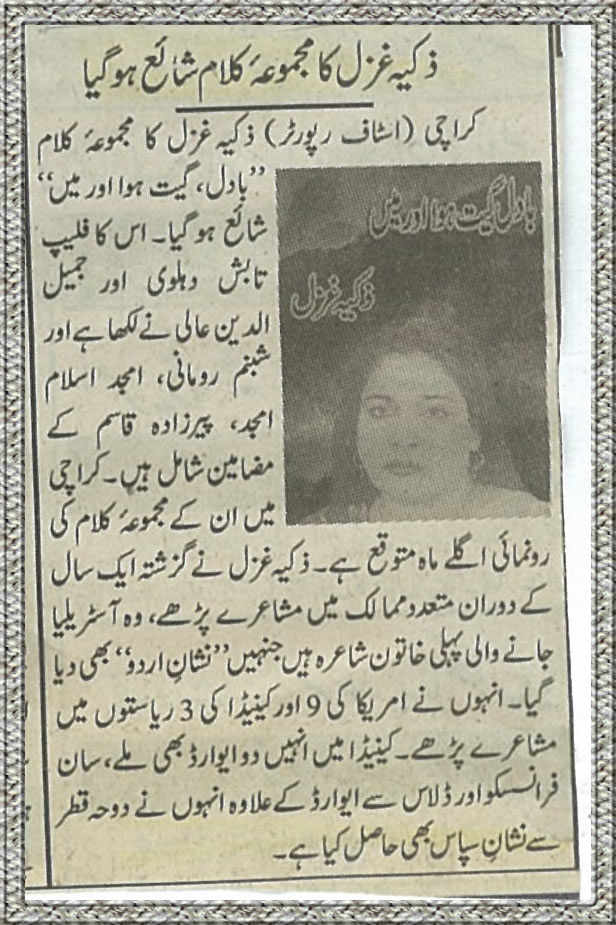 ذکیہ غزل کا مجموعۂ کلام شائع ہوگیا
کراچی (اسٹاف رپورٹر) ذکیہ غزل کا مجموعۂ کلام
”بادل، گیت ہوا اور میں“
شائع ہوگیا۔ اس کا فلیپ
تابش دہلوی اور جمیل
الدین عالی نے لکھا ہے اور
شبنم رومانی، امجد اسلام
امجد، پیرزادہ قاسم کے
مضامین شامل ہیں۔ کراچی
میں ان کے مجموعۂ کلام کی
رونمائی اگلے ماہ متوقع ہے۔ ذکیہ غزل نے گزشتہ ایک سال
کے دوران متعدد ممالک میں مشاعرے پڑھے، وہ آسٹریلیا
جانے والی پہلی خاتون شاعرہ ہیں جنہیں ”نشانِ اردو“ بھی دیا
گیا۔ انہوں نے امریکا کی 9 اور کینیڈا کی 3 ریاستوں میں
مشاعرے پڑھے۔ کینیڈا میں انہیں دو ایوارڈ بھی ملے، سان
فرانسسکو اور ڈلاس سے ایوارڈ کے علاوہ انہوں نے دوحہ قطر
سے نشانِ سپاس بھی حاصل کیا ہے۔
بادل گیت ہوا اور میں
ذکیہ غزل